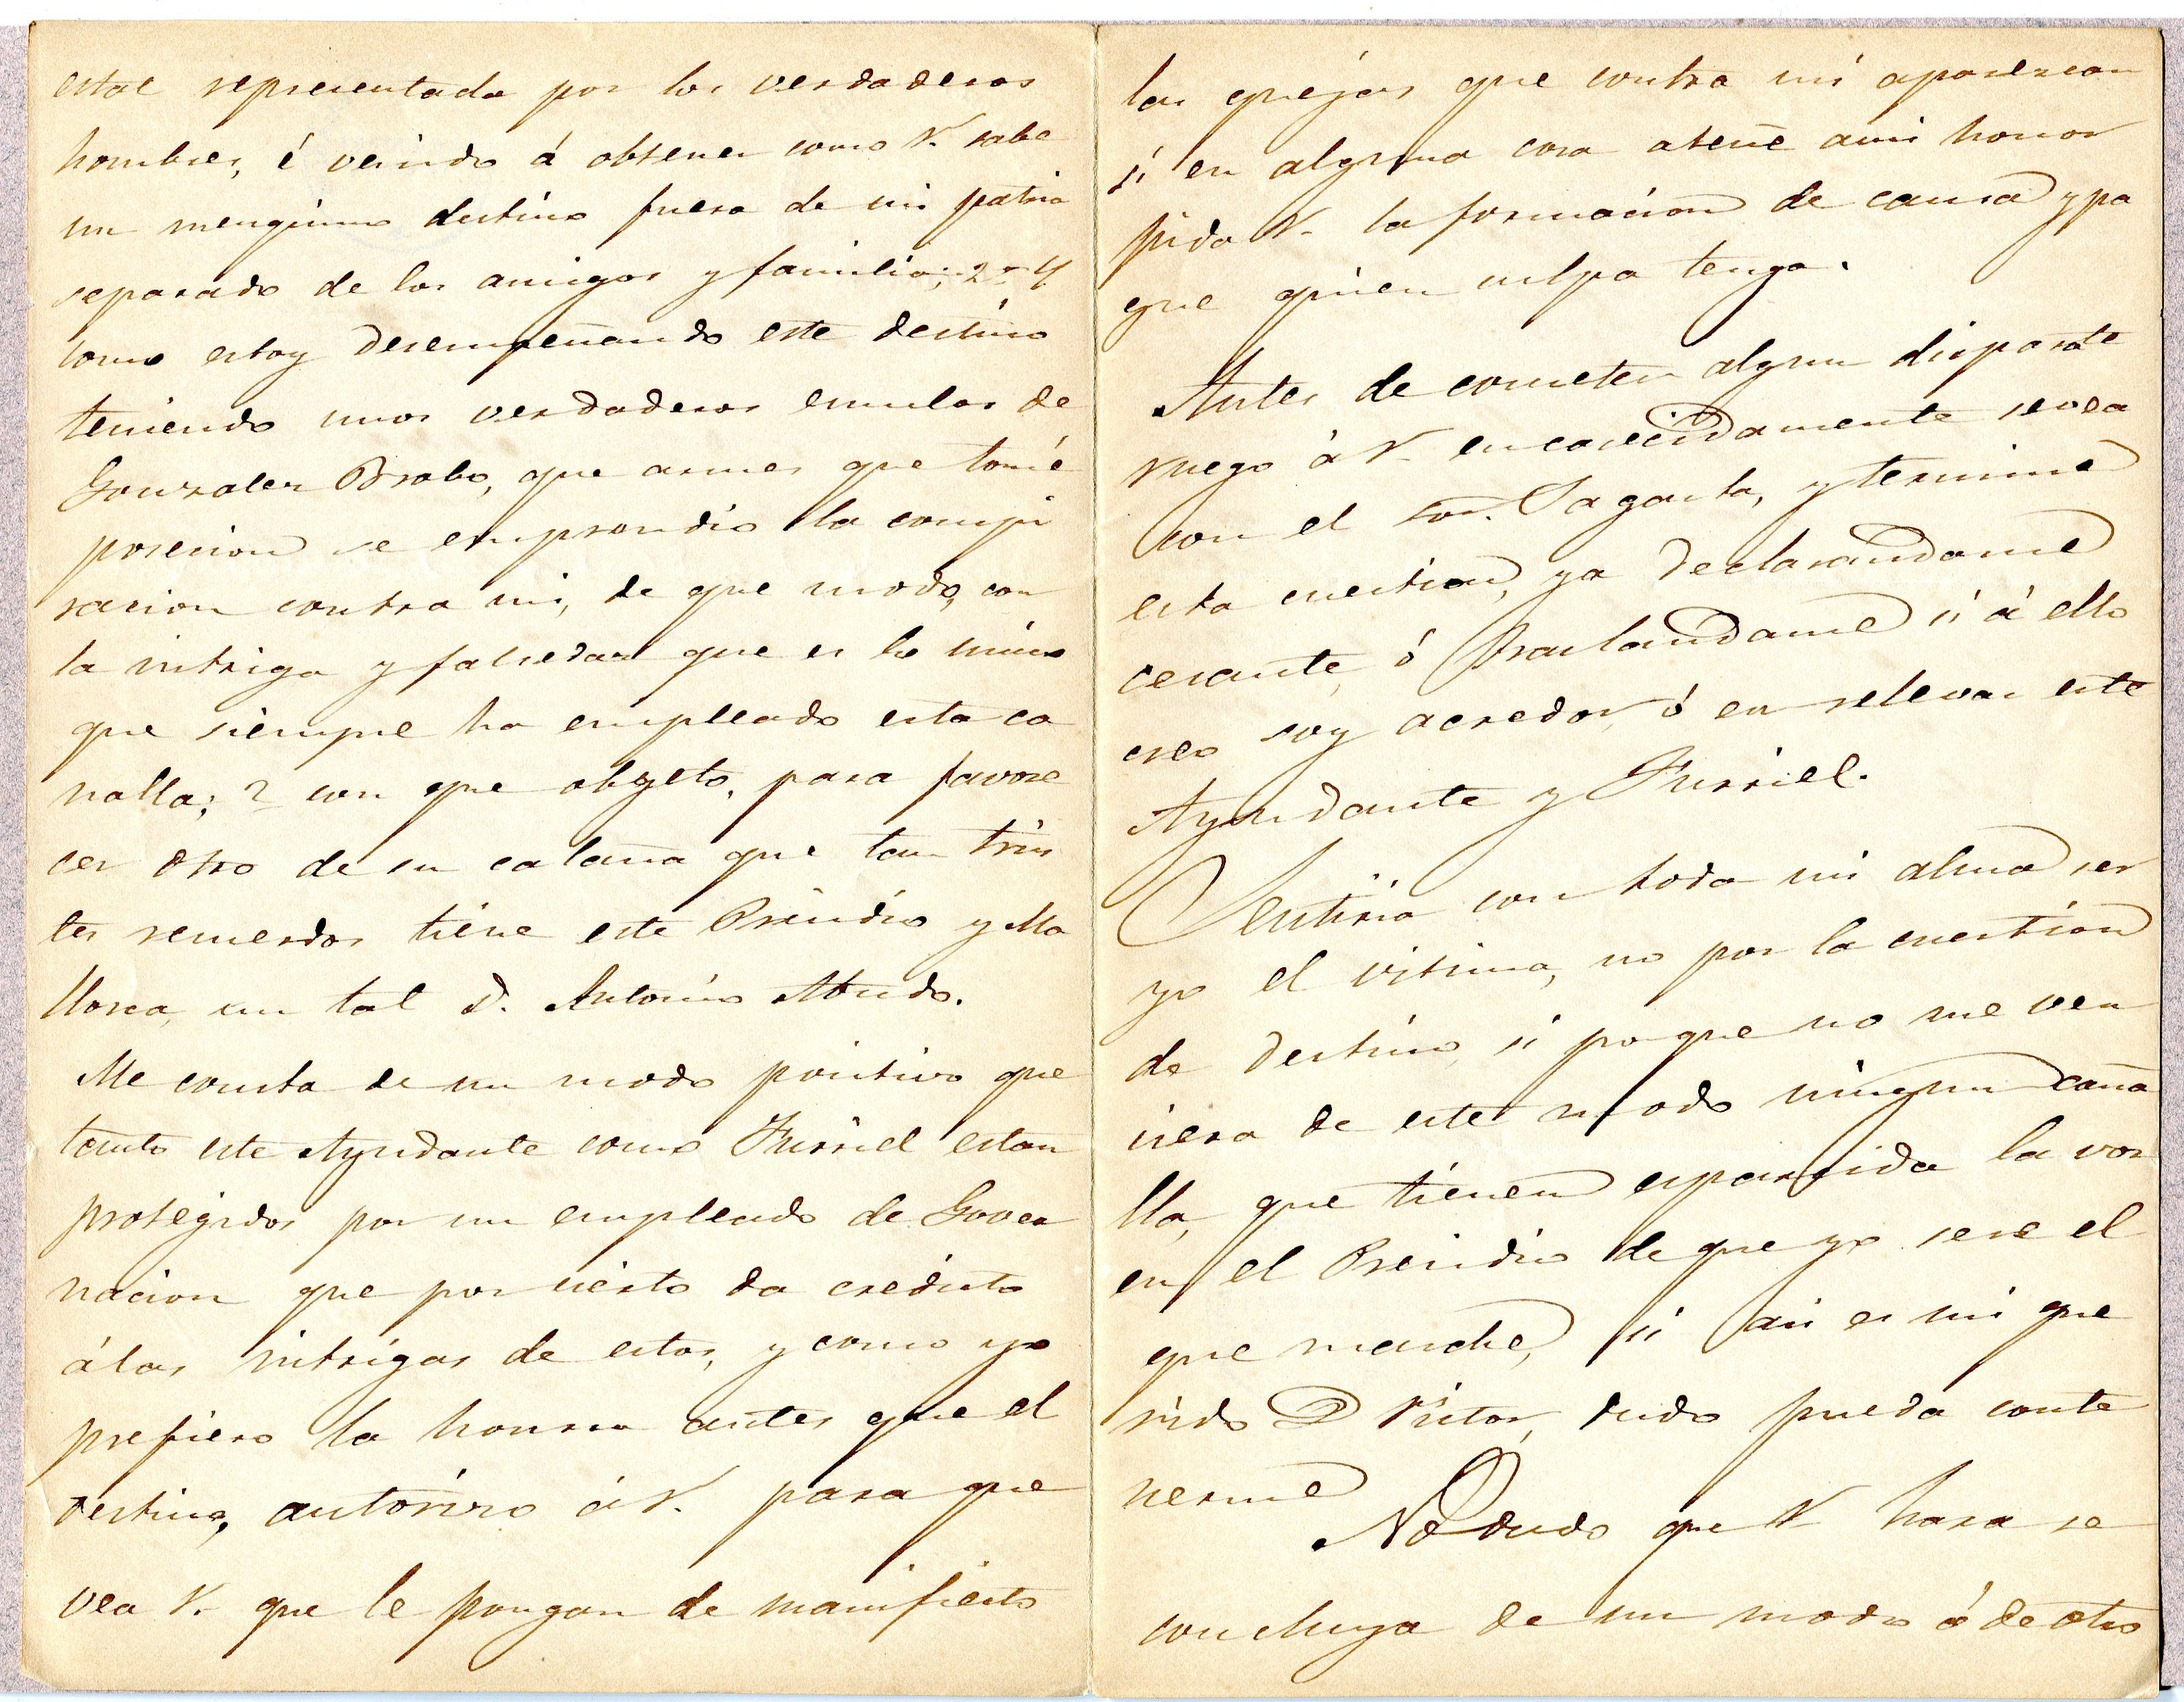 estar representada por los verdaderos
hombres, é venido á obtener como V. sabe
un menguimo destino fuera de mi patria
separado de los amigos y familia; 2 y
como estoy desempeñando este destino
teniendo unos verdaderos emulos de
Gonzalez Brabo, que asmes que tomé
posecion se emprendio la conspi
racion contra mi, de que modo, con
la intriga y falsedad que es lo único
que siempre ha empleado esta ca
nalla; ? con que obgeto, para favore
cer otro de su calaña que tan tris
tes recuerdos tiene este Presidio y Ma
llorca, un tal D. Antonio Mudo.
Me consta de un modo positivo que
tanto este Ayudante como Furriel estan
protegidos por un empleado de Gover
nacion que por cierto da credito
álas intrigas de estos, y como yo
prefiero la honra antes que el
destino, autorizo á V. para que
vea V. que le pongan de manifiesto
las quejas que contra mi aparezcan
si en alguna cosa atañe ami honor
pida V. la formacion de causa y pa
gue quien culpa tenga.
Antes de cometer algun disparate
ruego á V. encarecidamente sevea
con el sor. Sagasta, y termine
esta cuestion, ya declarandome
cesante, ó trasladandome si á ello
creo soy acredor, ó en relevar este
Ayudante y Furriel.
Sentiria con toda mi alma ser
yo el vitima, no por la cuestion
de destino, si porque no me ven
ciera de este modo ningun cana
lla, que tienen esparcida la voz
en el Presidio de que yo sere el
que marche, si asi es mi que
rido D Vitor, dudo pueda conte
nerme
No dudo que V hara se
concluya de un modo ó de otro